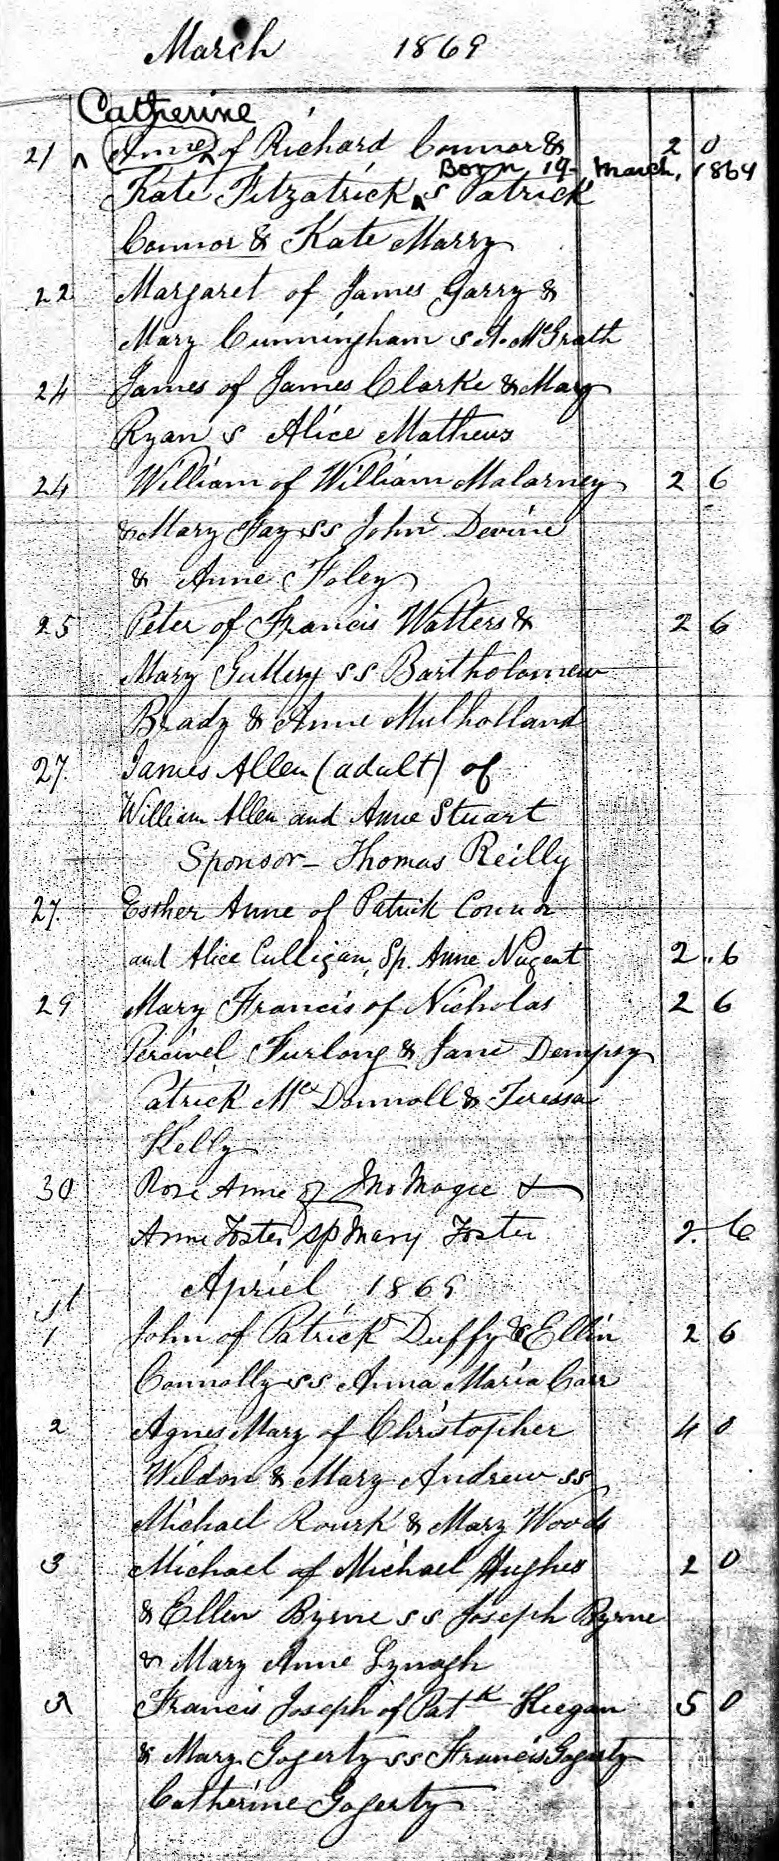 March 1869
Catherine
21 ^ Anne ^ of Richard Connor & 2 0
Born 19 March, 1869
Kate Fitzpatrick ^ s Patrick
Connor & Kate Marry
22 Margaret of James Garry &
Mary Cunningham s A. McGrath
24 James of James Clarke & Mary
Ryan s Alice Mathews
24 William of William Malarney 2 6
& Mary Fay ss John Devine
& Anne Foley
25 Peter of Francis Watters & 2 6
Mary Guttery ss Bartholomew
Brady & Anne Mulholland
27 James Allen (adult) of
William Allen and Anne Stuart
Sponsor - Thomas Reilly
27. Esther Anne of Patrick Connor
and Alice Culligan, Sp. Anne Nugent 2 .. 6
29 Mary Francis of Nicholas 2 6
Percivel Furlong & Jane Dempsy
Patrick Mc Donnoll & Teressa
Kelly
30 Rose Anne of Jno Magee &
Anne Foster sp Mary Foster 2. 6
Apriel 1869
1 John of Patrick Duffy & Ellin 2 6
Connolly ss Anna Maria Carr
2 Agnes Mary of Christopher 4 0
Weldon & Mary Andrew ss
Michael Rourk & Mary Woods
3 Michael of Michael Hughes 2 0
& Ellen Byrne ss Joseph Byrne
& Mary Anne Lynagh
3 Francis Joseph of Patk Keegan 5 0
& Mary Gogerty ss Francis Gogerty
Catherine Gogerty